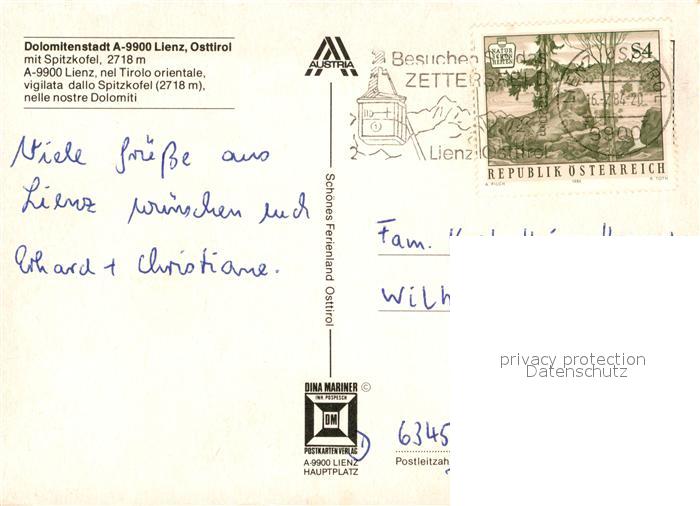 Dolomitenstadt A-9900 Lienz, Osttirol
mit Spitzkofel, 2718 m
A-9900 Lienz, nel Tirolo orientale,
vigilata dallo Spitzkofel (2718 m),
nelle nostre Dolomiti
Viele Grüße aus
Lienz wünschen euch
Erhard + Christiane.
AUSTRIA
Schönes Ferienland Osttirol
DINA MARINER ©
INH. POSPESCH
DM
POSTKARTENVERLAG
A-9900 LIENZ
HAUPTPLATZ
Besuchen das
ZETTERSFELD
Lienz/Osttirol
S4
NATUR
9900
REPUBLIK ÖSTERREICH
A. PILCH 1984 K. TOTH
Fam.
Wilh
6345
Postleitzah
privacy protection
Datenschutz